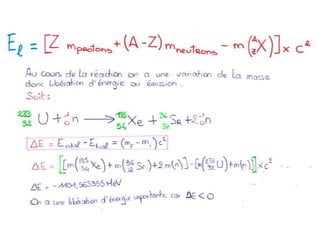 Eℓ = [Z m protons + (A - Z) m neutrons - m(ᴬ_Z X)] x c²
Au cours de la réaction on a une variation de la masse
donc libération d'énergie ou émission.
Soit:
²³⁵₉₂U + ¹₀n → ¹³⁵₅₄Xe + Sr + 2¹₀n
ΔE = - = (m - m)c²
ΔE = [[m(¹³⁵₅₄Xe) + m(Sr) + 2m(n)] - [m(²³⁵₉₂U) + m(n)]] x c²
ΔE = - MeV
On a une libération d'énergie importante car ΔE < 0